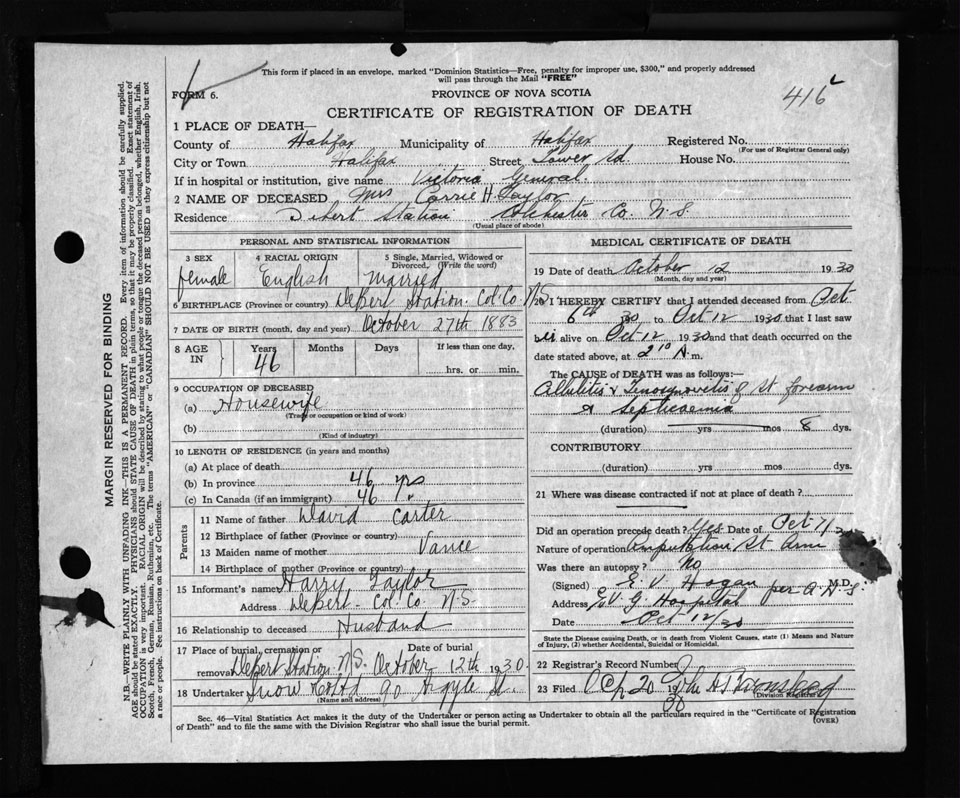 This form if placed in an envelope, marked "Dominion Statistics—Free, penalty for improper use, $300," and properly addressed
will pass through the Mail "FREE"
FORM 6.
PROVINCE OF NOVA SCOTIA
416
CERTIFICATE OF REGISTRATION OF DEATH
1 PLACE OF DEATH
County of Halifax Municipality of Halifax Registered No.
(For use of Registrar General only)
City or Town Halifax Street Tower Rd House No.
If in hospital or institution, give name Victoria General
2 NAME OF DECEASED Mrs Carrie H. Taylor
Residence Debert Station Colchester Co. N.S.
(Usual place of abode)
PERSONAL AND STATISTICAL INFORMATION
3 SEX 4 RACIAL ORIGIN 5 Single, Married, Widowed or
Divorced. (Write the word)
female English Married
6 BIRTHPLACE (Province or country) Debert Station. Col. Co. N.S.
7 DATE OF BIRTH (month, day and year) October 27th 1883
8 AGE IN Years Months Days If less than one day.
46 hrs. or min.
9 OCCUPATION OF DECEASED
(a) Housewife
(Trade or occupation or kind of work)
(b)
(Kind of industry)
10 LENGTH OF RESIDENCE (in years and months)
(a) At place of death
(b) In province 46 yrs
(c) In Canada (if an immigrant) 46 "
Parents
11 Name of father David Carter
12 Birthplace of father (Province or country)
13 Maiden name of mother Vance
14 Birthplace of mother (Province or country)
15 Informant's name Harry Taylor
Address Debert - Col. Co. N.S.
16 Relationship to deceased Husband
17 Place of burial, cremation or removal Debert Station. N.S. Date of burial October 12th 1930
18 Undertaker Snow Co Ltd 90 Argyle St.
(Name and address)
MEDICAL CERTIFICATE OF DEATH
19 Date of death October 12 1930
(Month, day and year)
20 I HEREBY CERTIFY that I attended deceased from Oct
6th 30 to Oct 12 1930 that I last saw
alive on Oct 12 1930 and that death occurred on the
date stated above, at 2 A. m.
The CAUSE of DEATH was as follows:
Cellulitis & Tenosynovitis of forearm
& Septicaemia
(duration) yrs mos 8 dys.
CONTRIBUTORY
(duration) yrs mos dys.
21 Where was disease contracted if not at place of death?
Did an operation precede death? Yes Date of Oct 7/30
Nature of operation Amputation arm
Was there an autopsy? No
(Signed) E. V. Hogan per A.H.S. M.D.
Address V. G. Hospital
Date Oct 12/30
State the Disease causing Death, or in death from Violent Causes, state (1) Means and Nature
of Injury, (2) whether Accidental, Suicidal or Homicidal.
22 Registrar's Record Number
23 Filed 20 1930
Division Registrar
Sec. 46—Vital Statistics Act makes it the duty of the Undertaker or person acting as Undertaker to obtain all the particulars required in the "Certificate of Registration
of Death" and to file the same with the Division Registrar who shall issue the burial permit.
(OVER)
MARGIN RESERVED FOR BINDING
N.B.—WRITE PLAINLY WITH UNFADING INK—THIS IS A PERMANENT RECORD. Every item of information should be carefully supplied.
AGE should be stated EXACTLY. PHYSICIANS should STATE CAUSE OF DEATH in plain terms, so that it may be properly classified. Exact statement of
OCCUPATION is very important. RACIAL ORIGIN will be described by stating to what people or tongue the deceased person belonged, whether English, Irish,
Scotch, French, German, Russian, Ruthenian, etc. The terms "AMERICAN" or "CANADIAN" SHOULD NOT BE USED as they express citizenship but not
a race or people. See instructions on back of Certificate.